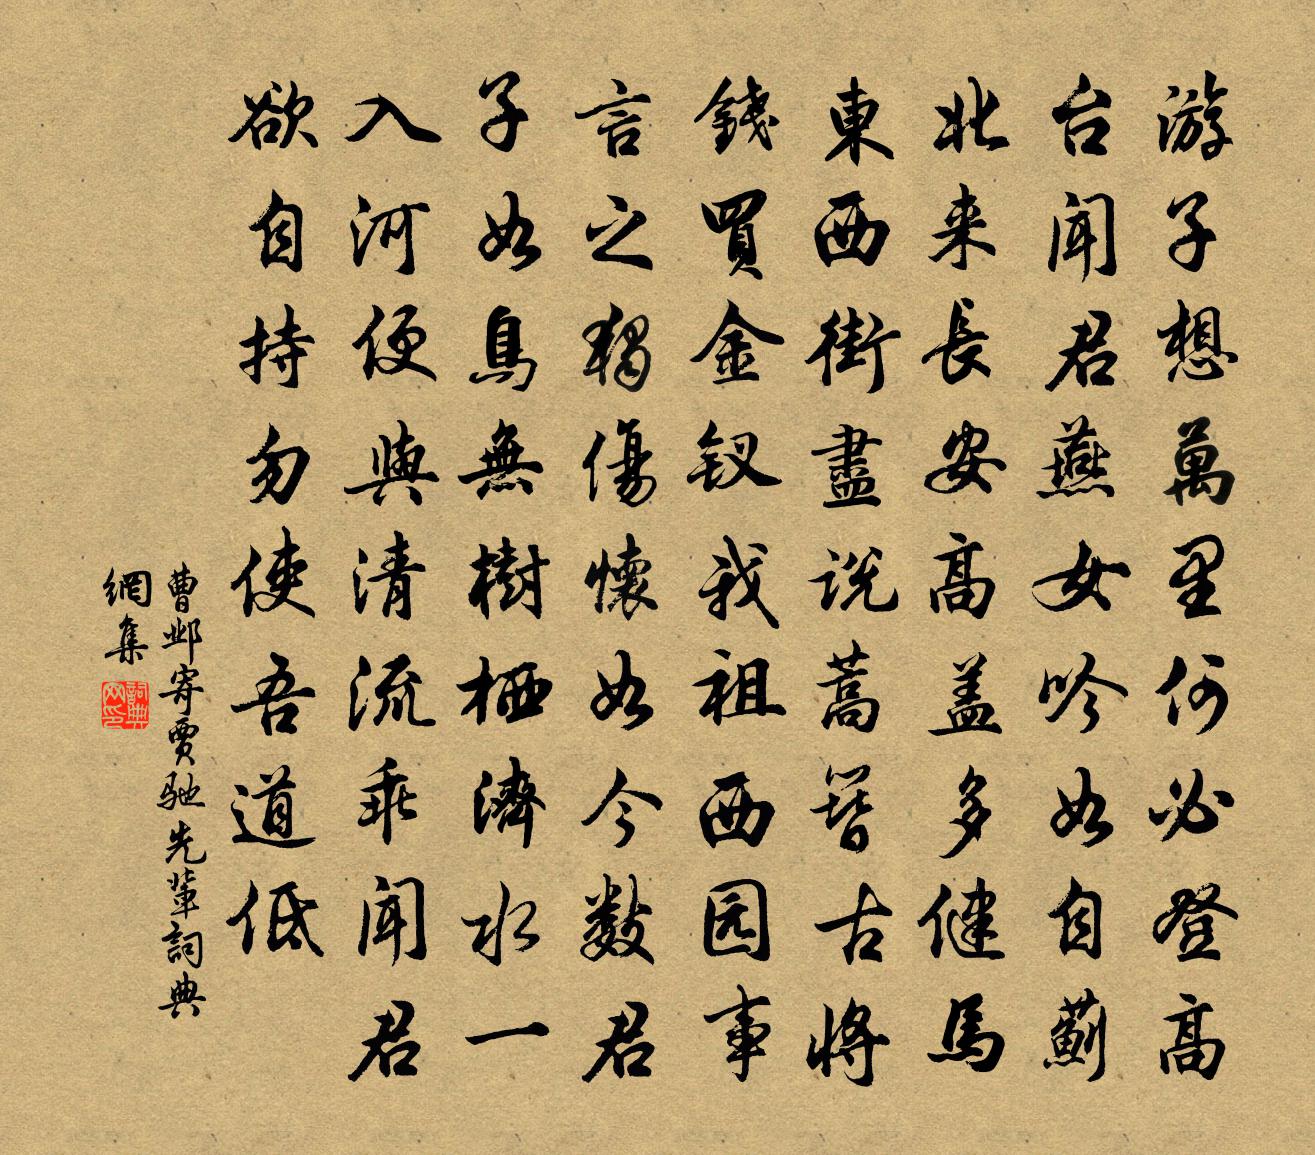 游子想萬里何必登高
台聞君燕女吟如自薊
北来長安高盖多健馬
東西街盡説蒿簪古將
錢買金釵我祖西园事
言之獨傷懷如今数君
子如鳥無樹栖濟水一
入河便與清流乖聞君
欲自持勿使吾道低
曹邺寄賈馳先輩詞典
網集
詞典网印